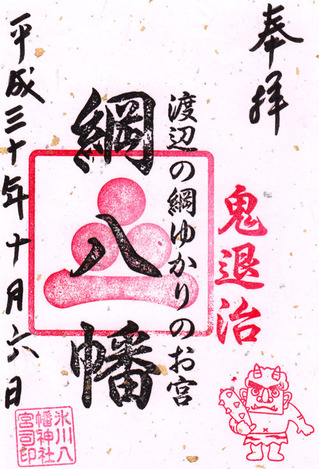 奉拝
鬼退治
渡辺の綱ゆかりのお宮
綱八幡
平成三十年十月六日
氷川八
幡神社
宮司印